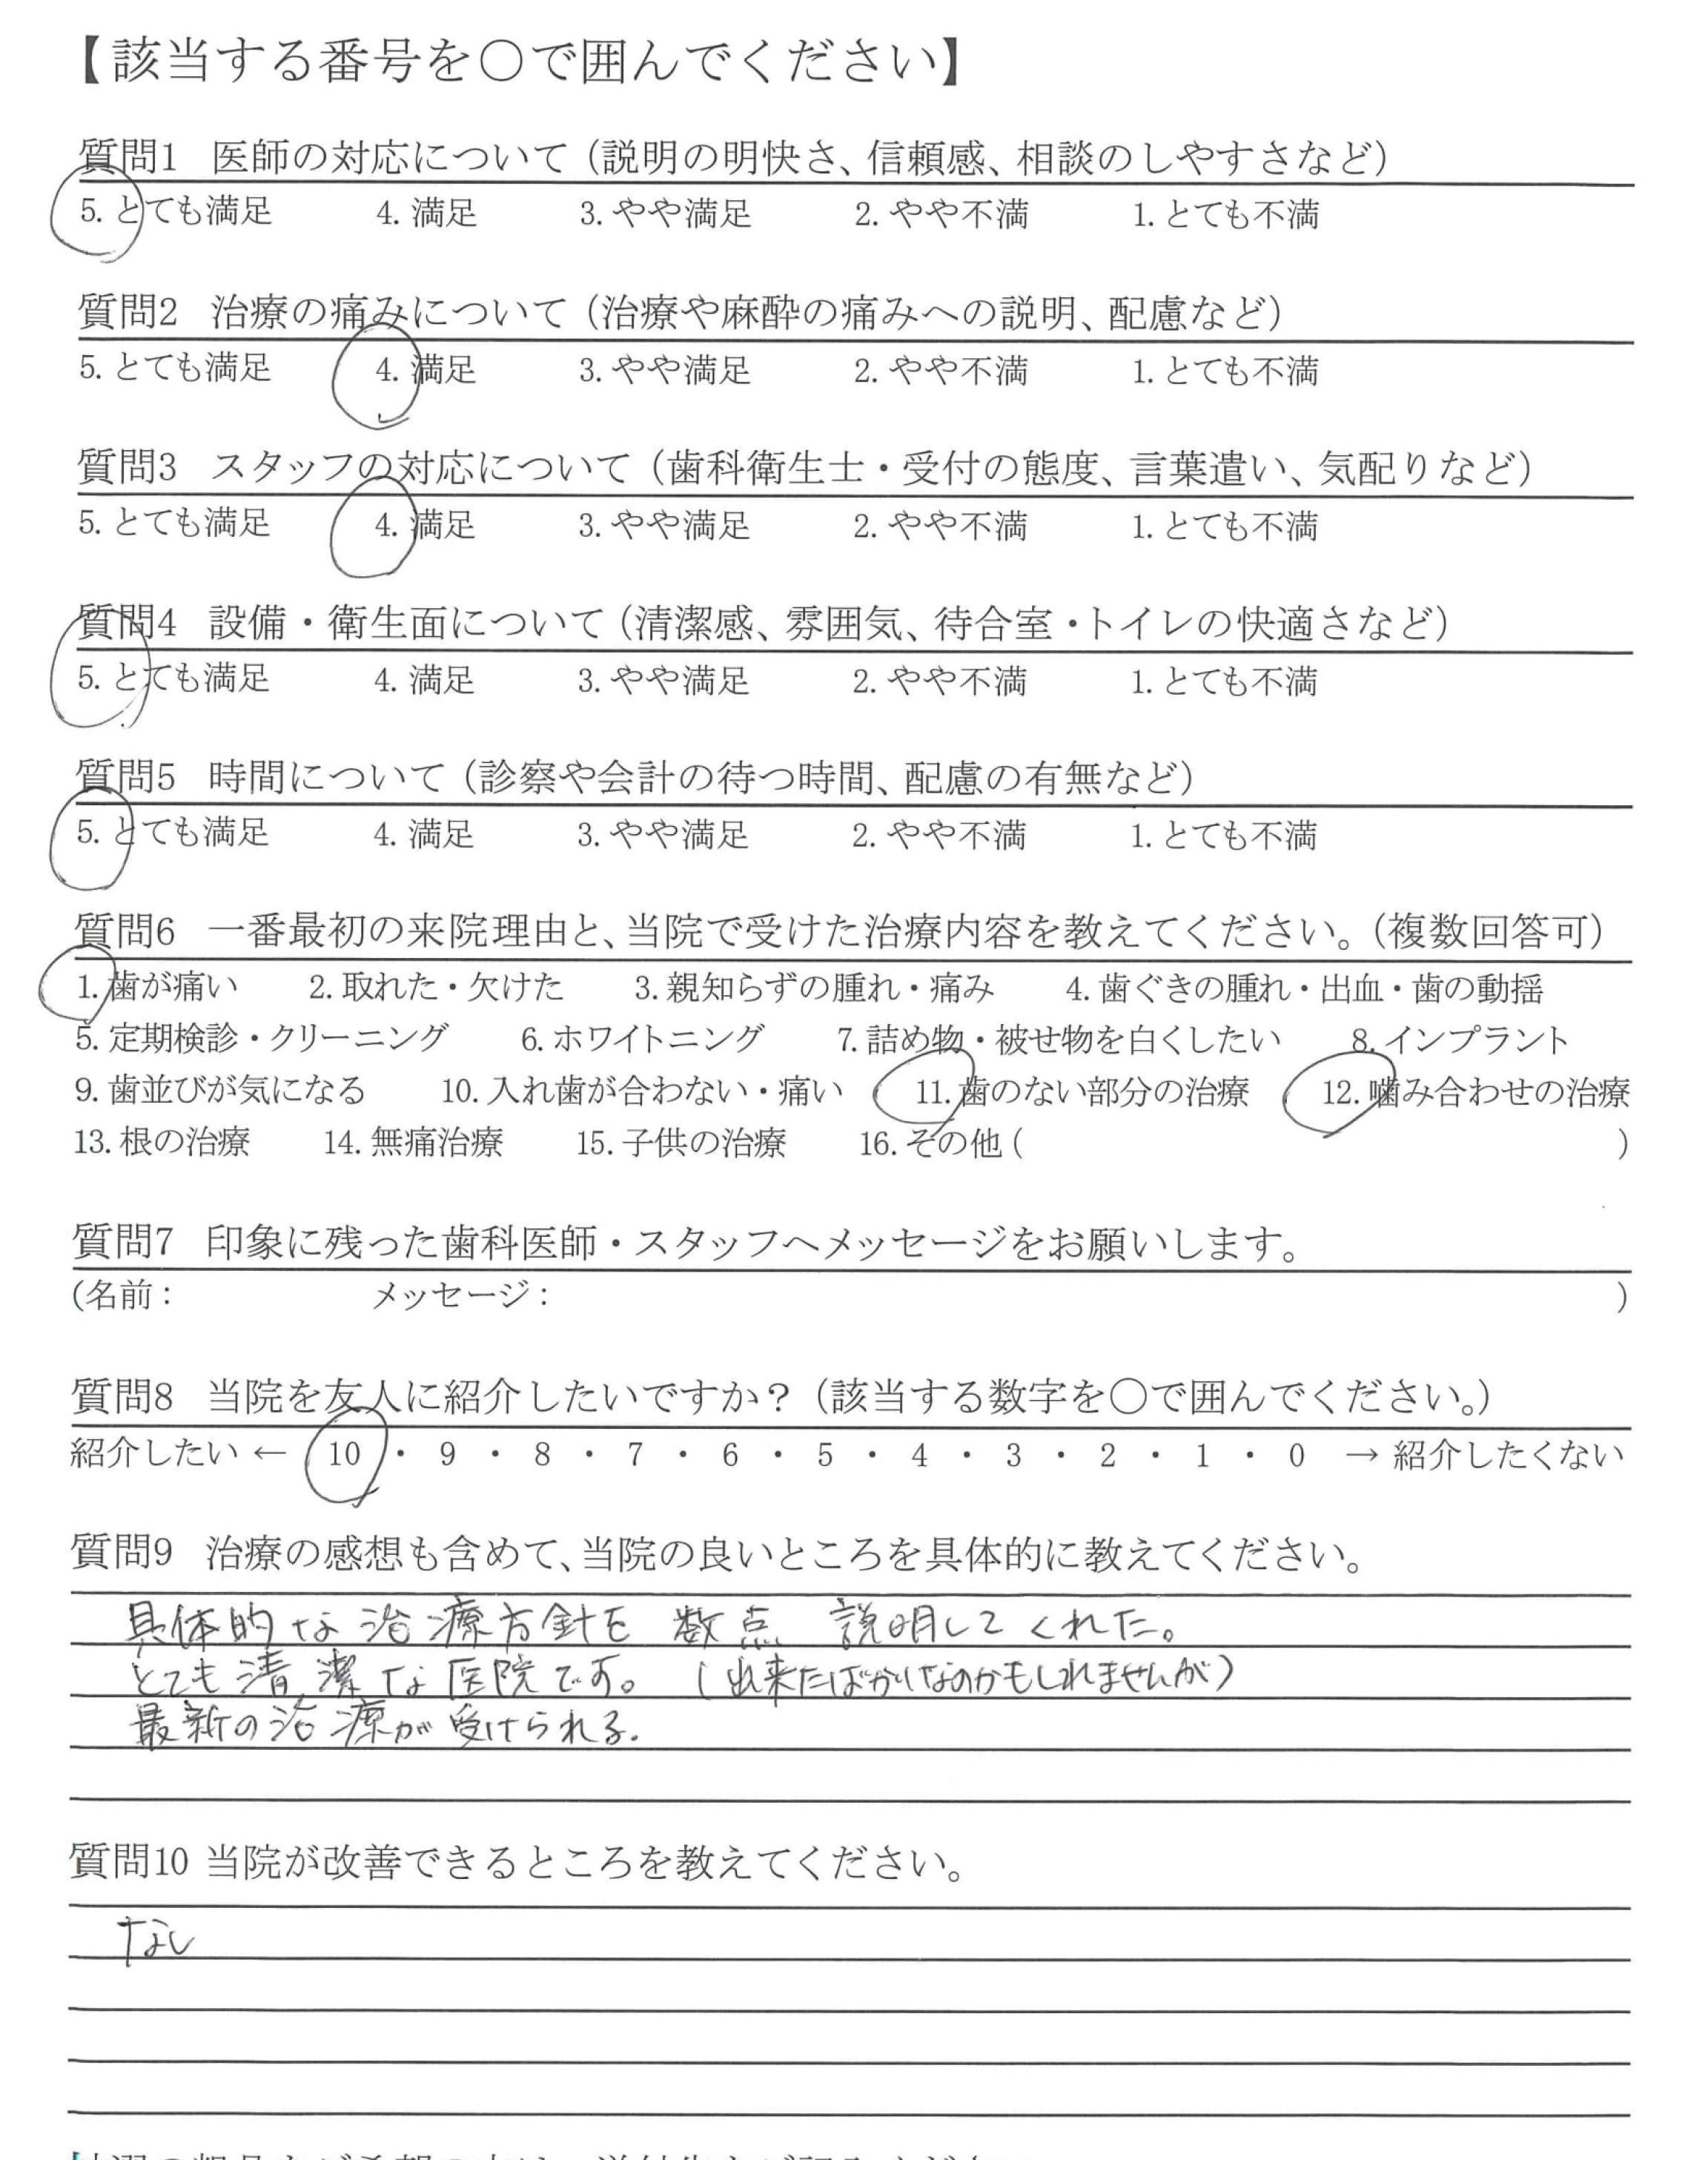 【該当する番号を○で囲んでください】
質問1 医師の対応について（説明の明快さ、信頼感、相談のしやすさなど）
5. とても満足 4. 満足 3. やや満足 2. やや不満 1. とても不満
質問2 治療の痛みについて（治療や麻酔の痛みへの説明、配慮など）
5. とても満足 4. 満足 3. やや満足 2. やや不満 1. とても不満
質問3 スタッフの対応について（歯科衛生士・受付の態度、言葉遣い、気配りなど）
5. とても満足 4. 満足 3. やや満足 2. やや不満 1. とても不満
質問4 設備・衛生面について（清潔感、雰囲気、待合室・トイレの快適さなど）
5. とても満足 4. 満足 3. やや満足 2. やや不満 1. とても不満
質問5 時間について（診察や会計の待つ時間、配慮の有無など）
5. とても満足 4. 満足 3. やや満足 2. やや不満 1. とても不満
質問6 一番最初の来院理由と、当院で受けた治療内容を教えてください。（複数回答可）
1. 歯が痛い 2. 取れた・欠けた 3. 親知らずの腫れ・痛み 4. 歯ぐきの腫れ・出血・歯の動揺
5. 定期検診・クリーニング 6. ホワイトニング 7. 詰め物・被せ物を白くしたい 8. インプラント
9. 歯並びが気になる 10. 入れ歯が合わない・痛い 11. 歯のない部分の治療 12. 噛み合わせの治療
13. 根の治療 14. 無痛治療 15. 子供の治療 16. その他 ( )
質問7 印象に残った歯科医師・スタッフへメッセージをお願いします。
(名前： メッセージ： )
質問8 当院を友人に紹介したいですか？（該当する数字を○で囲んでください。）
紹介したい ← 10 ・ 9 ・ 8 ・ 7 ・ 6 ・ 5 ・ 4 ・ 3 ・ 2 ・ 1 ・ 0 → 紹介したくない
質問9 治療の感想も含めて、当院の良いところを具体的に教えてください。
具体的な治療方針を 数点 説明してくれた。
とても清潔な医院です。（出来たばかりなのかもしれませんが）
最新の治療が受けられる.
質問10 当院が改善できるところを教えてください。
なし